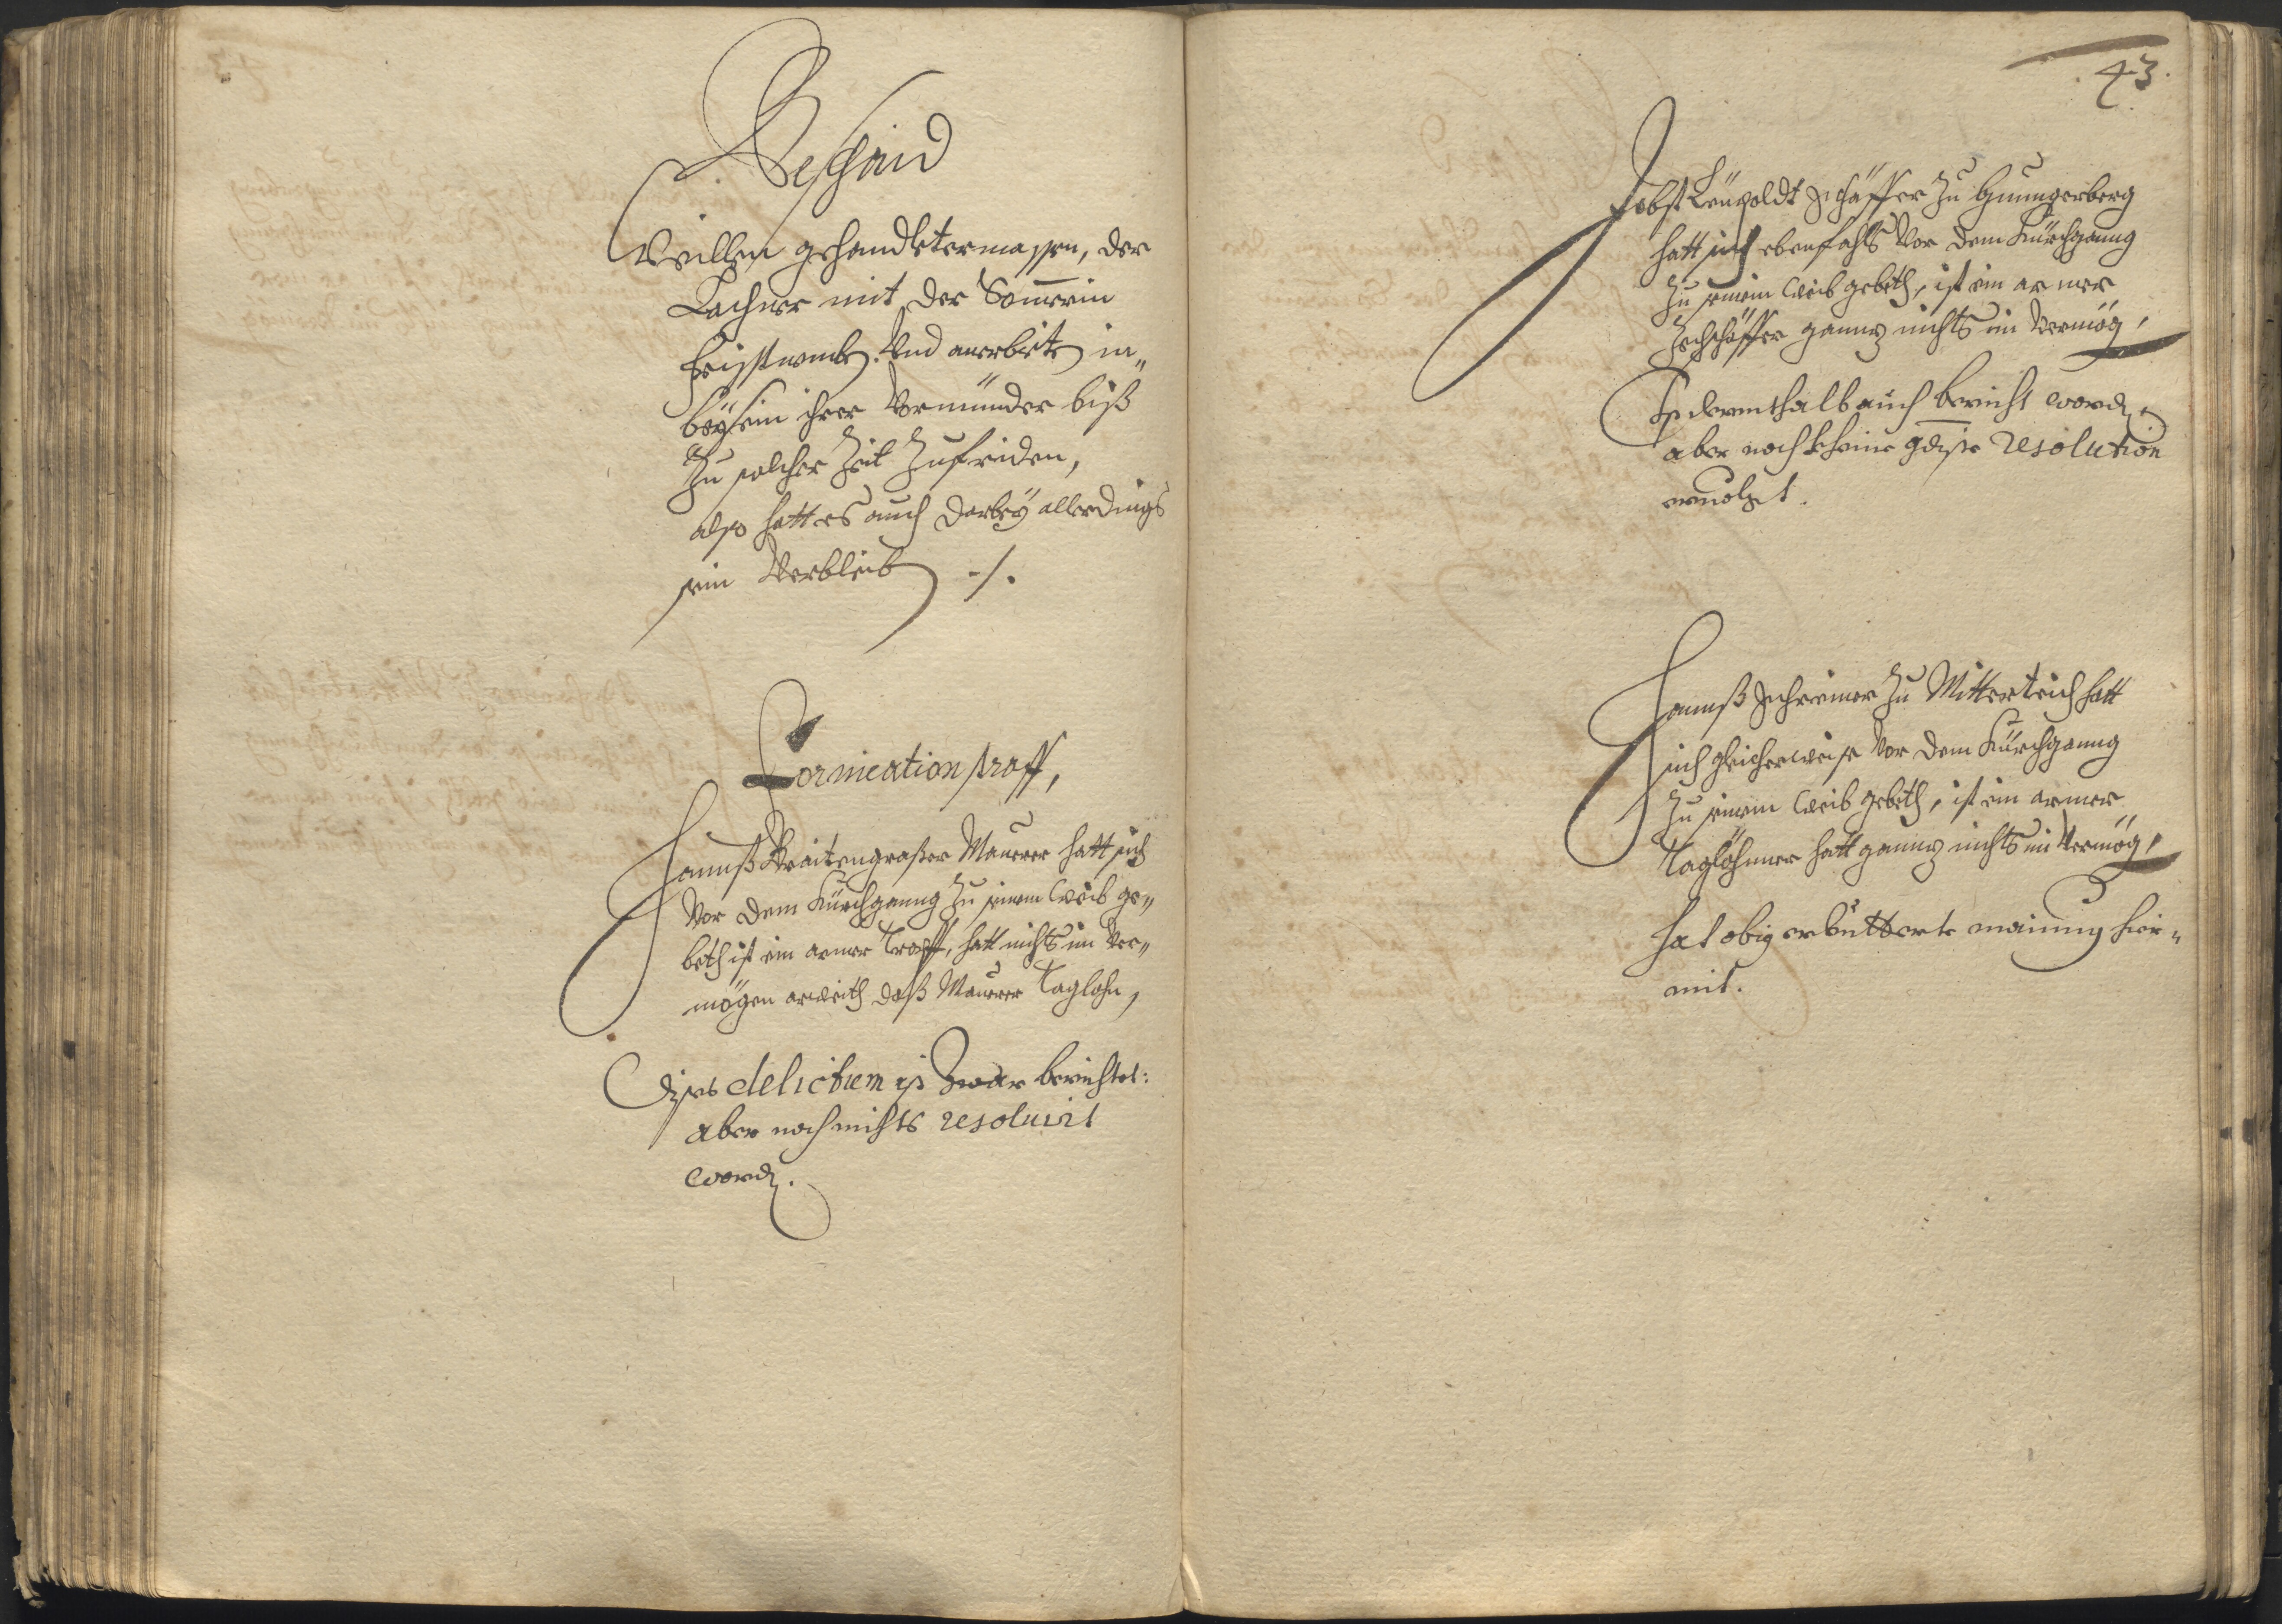 Beschaid
Weillen gehandletermassen, der
Lachner mit der Som̄erin
fristweiß. Vnd anerbiete in„
beÿsein ihrer Vormünder biß
Zu solcher Zeit Zufriden,
also hatt es auch darbeÿ allerdings
sein Verbleib ./.
Fornication straff,
Hannß Braitengraßer Maurer hatt sich
Vor dem Kürchganng Zu seinem Weib ge„
beth ist ein armer Tropff, hatt nichts im Ver„
mögen alß Maurer Taglohn,
Dises delictum ist Zwar berichtet:
aber noch nichts resoluirt
word.
43.
Jobst Leüpoldt Schäffer Zu Grumgerberg
hatt sich ebenfahls Vor dem Kürchganng
Zu seinem Weib gebeth, ist ein armer
Schäffer ganntz nichts im Vermög,
Ist derenthalb auch bericht word.
aber noch kheine gdiste resolution
eruolgt.
Hannß Schreiner Zu Mitterteich hatt
sich gleicherweise Vor dem Kürchganng
Zu seinem Weib gebeth, ist ein armer
Taglöhner hatt ganntz nichts im Vermög,
hat obig mainung hier„
mit.